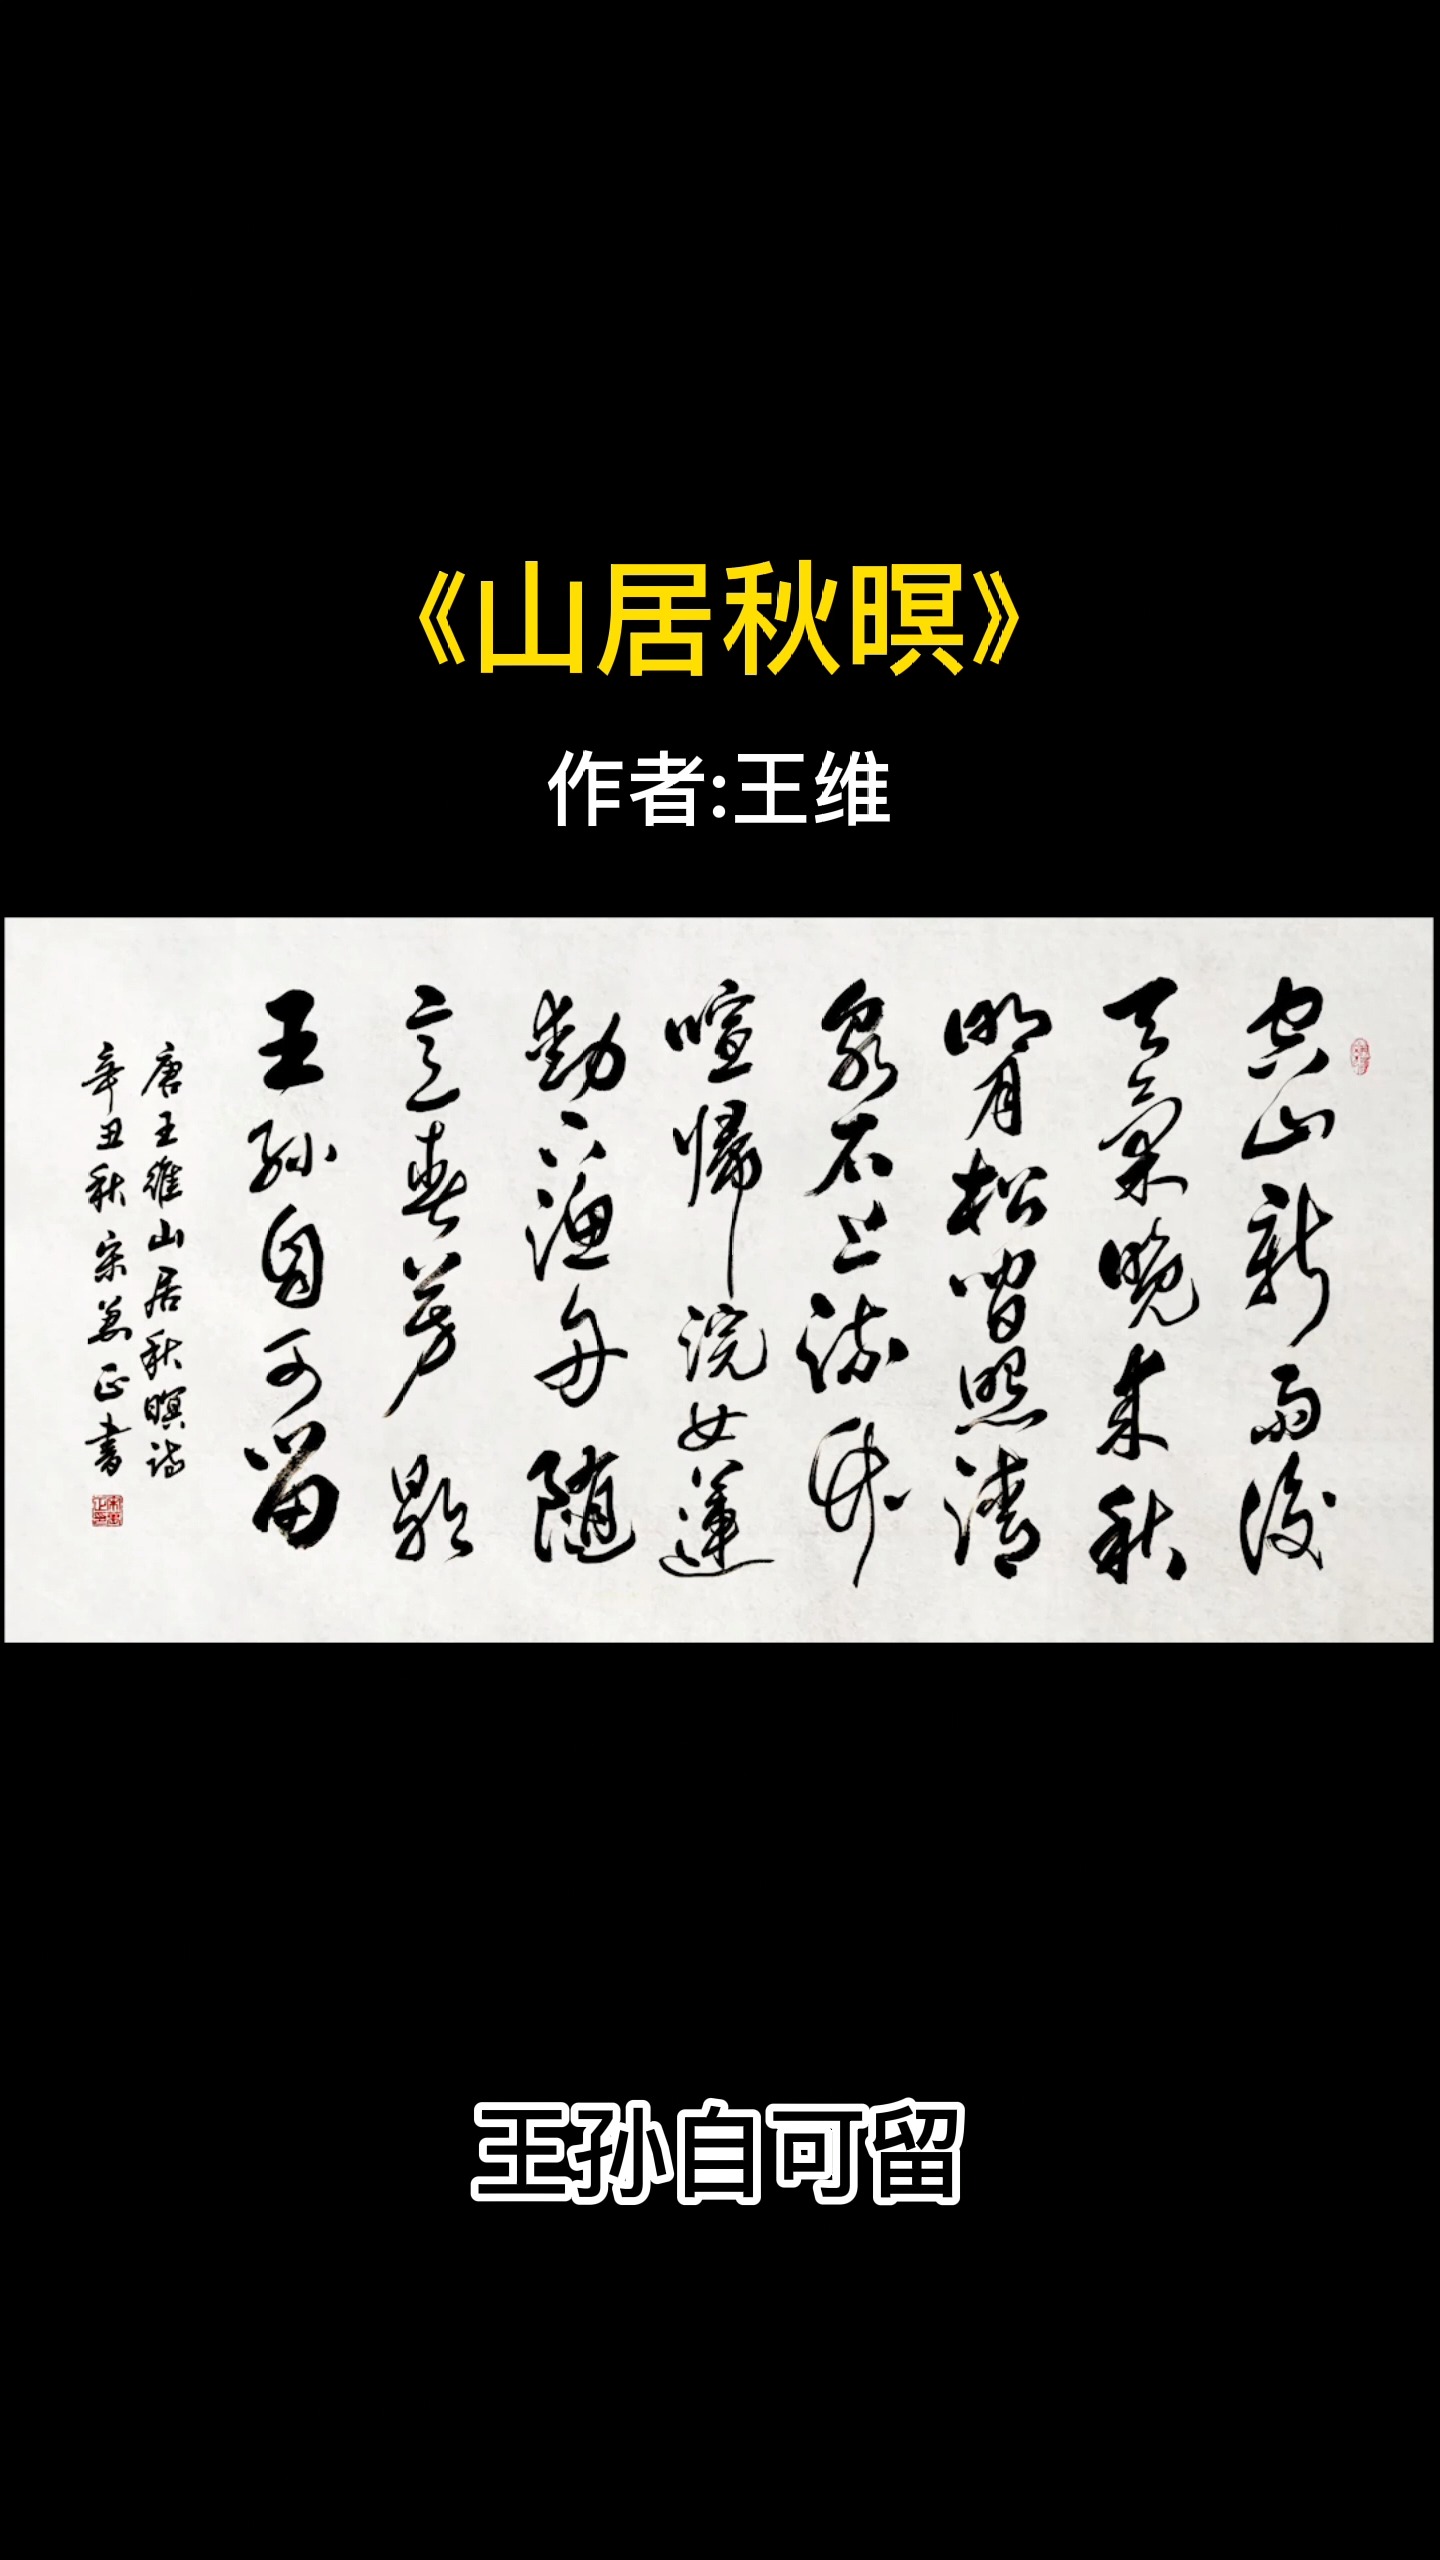 《山居秋暝》
作者:王维
空山新雨後
天氣晚来秋
明月松間照清
泉石上流竹
喧歸浣女蓮
動下漁舟随
意春芳歇
王孫自可留
唐王維山居秋暝詩
辛丑秋宋正書
王孙自可留